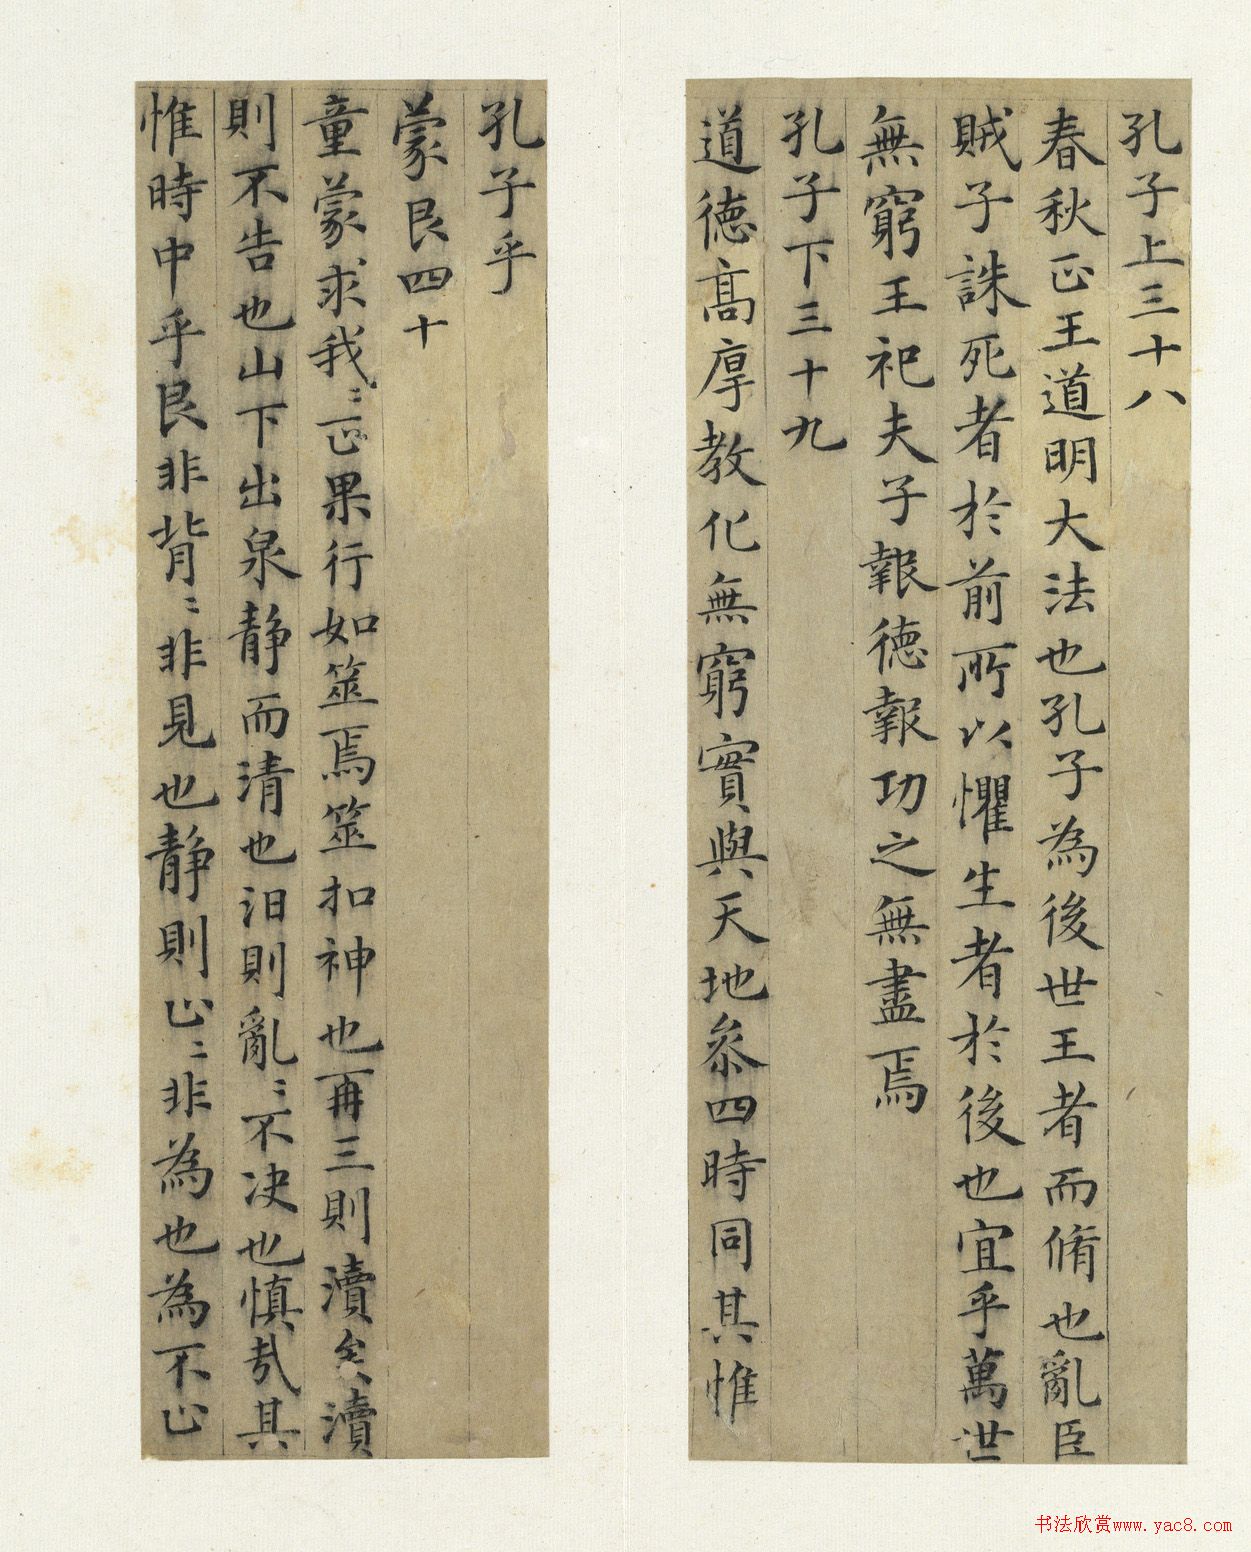 孔子上三十八
春秋正王道明大法也孔子為後世王者而脩也亂臣
賊子誅死者於前所以懼生者於後也宜乎萬世
無窮王祀夫子報德報功之無盡焉
孔子下三十九
道德高厚教化無窮實與天地參四時同其惟
孔子乎
蒙艮四十
童蒙求我〻正果行如筮焉筮扣神也再三則瀆矣瀆
則不告也山下出泉静而清也汨則亂〻不决也慎哉其
惟時中乎艮非背〻非見也静則止〻非為也為不止
书法欣赏www.yac8.com